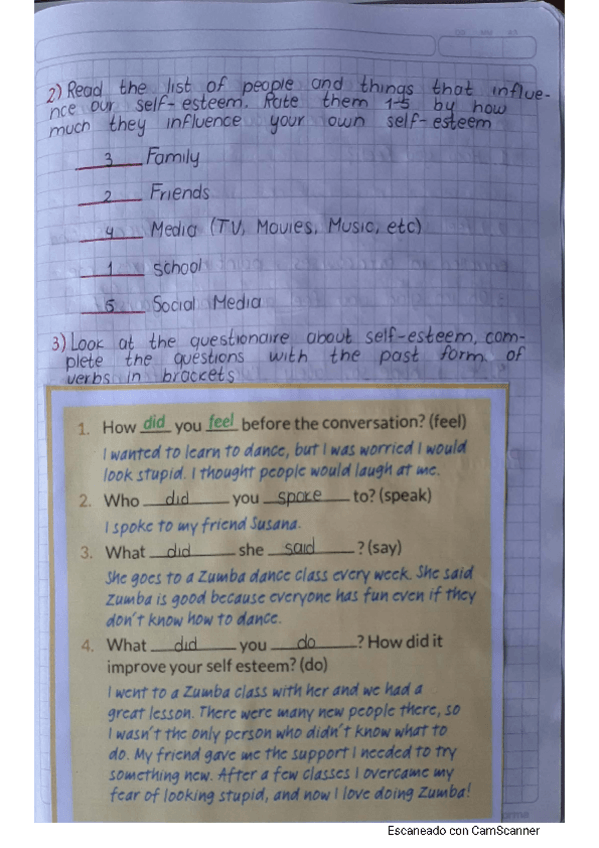 2) Read the list of people and things that influe-
nce our self-esteem. Rate them 1-5 by how
much they influence your own self-esteem
3 Family
2 Friends
4 Media (TV, Movies, Music, etc)
1 school
5 Social Media
3) Look at the questionaire about self-esteem, com-
plete the questions with the past form of
verbs in brackets
1. How did you feel before the conversation? (feel)
I wanted to learn to dance, but I was worried I would
look stupid. I thought people would laugh at me.
2. Who did you spoke to? (speak)
I spoke to my friend Susana.
3. What did she said ? (say)
She goes to a Zumba dance class every week. She said
Zumba is good because everyone has fun even if they
don't know how to dance.
4. What did you do ? How did it
improve your self esteem? (do)
I went to a Zumba class with her and we had a
great lesson. There were many new people there, so
I wasn't the only person who didn't know what to
do. My friend gave me the support I needed to try
something new. After a few classes I overcame my
fear of looking stupid, and now I love doing Zumba!
Escaneado con CamScanner